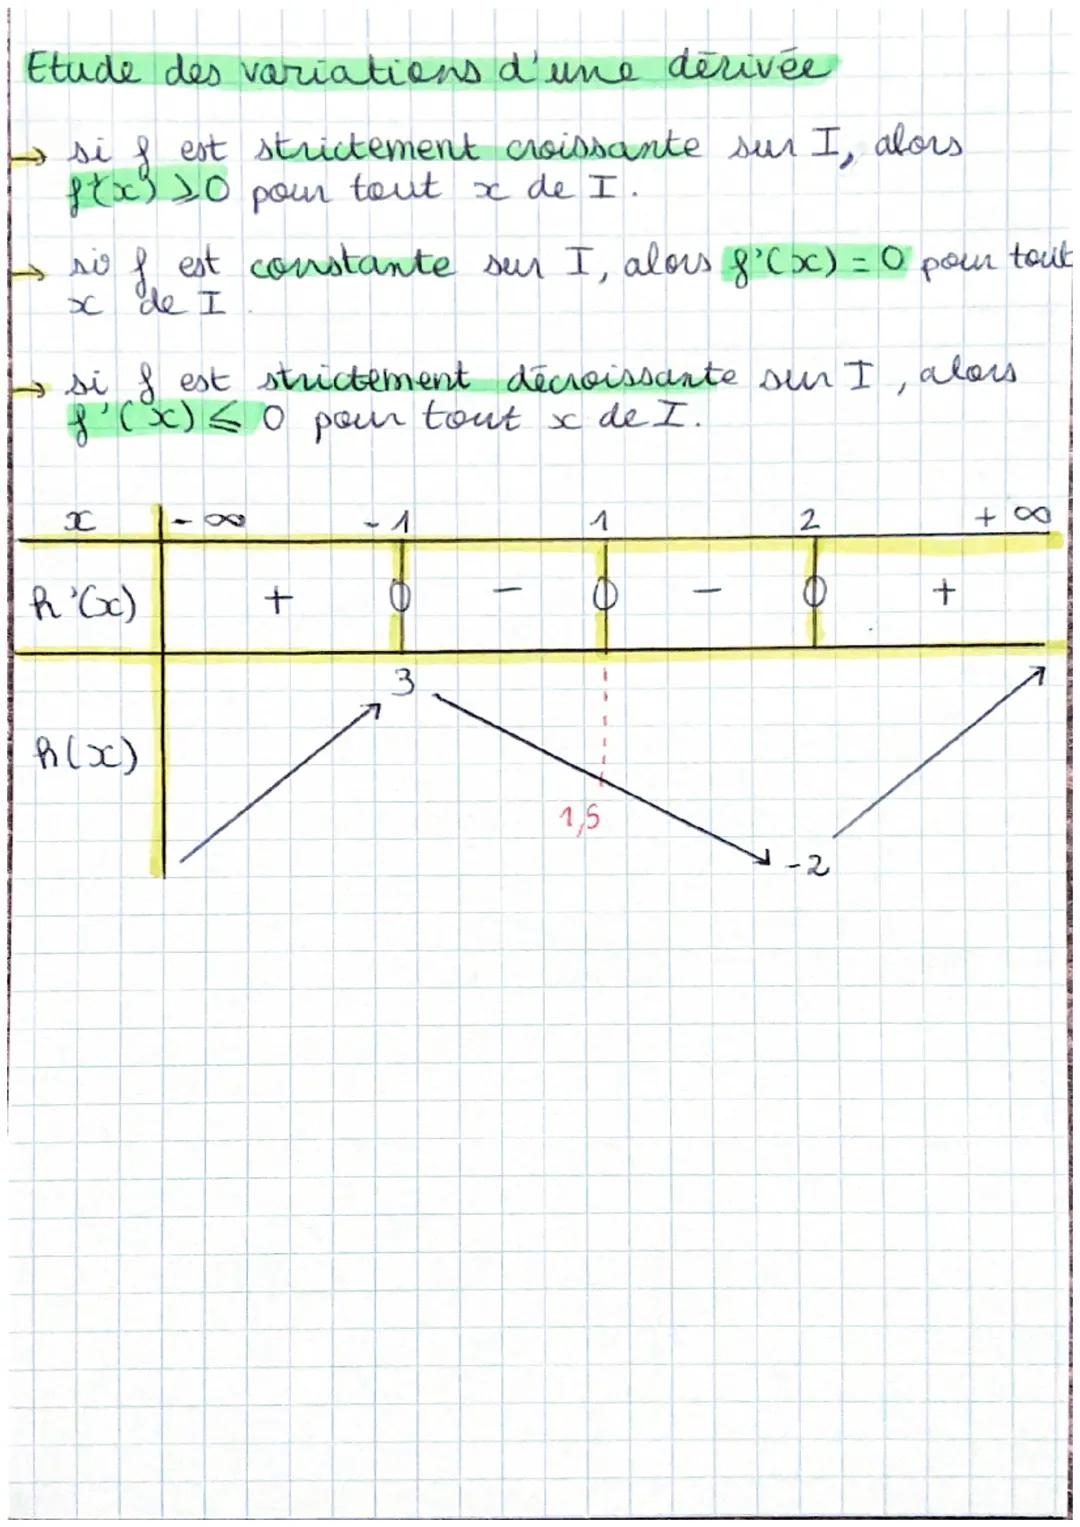 Etude des variations d'une dérivée
→ si f est strictement croissante sur I, alors
f'(x) ⩾ 0 pour tout x de I.
→ si f est constante sur I, alors f'(x) = 0 pour tout
x de I.
→ si f est strictement décroissante sur I, alors
f'(x) ⩽ 0 pour tout x de I.
x -∞ -1 1 2 +∞
h'(x) + 0 - 0 - 0 +
3
h(x)
1,5
-2